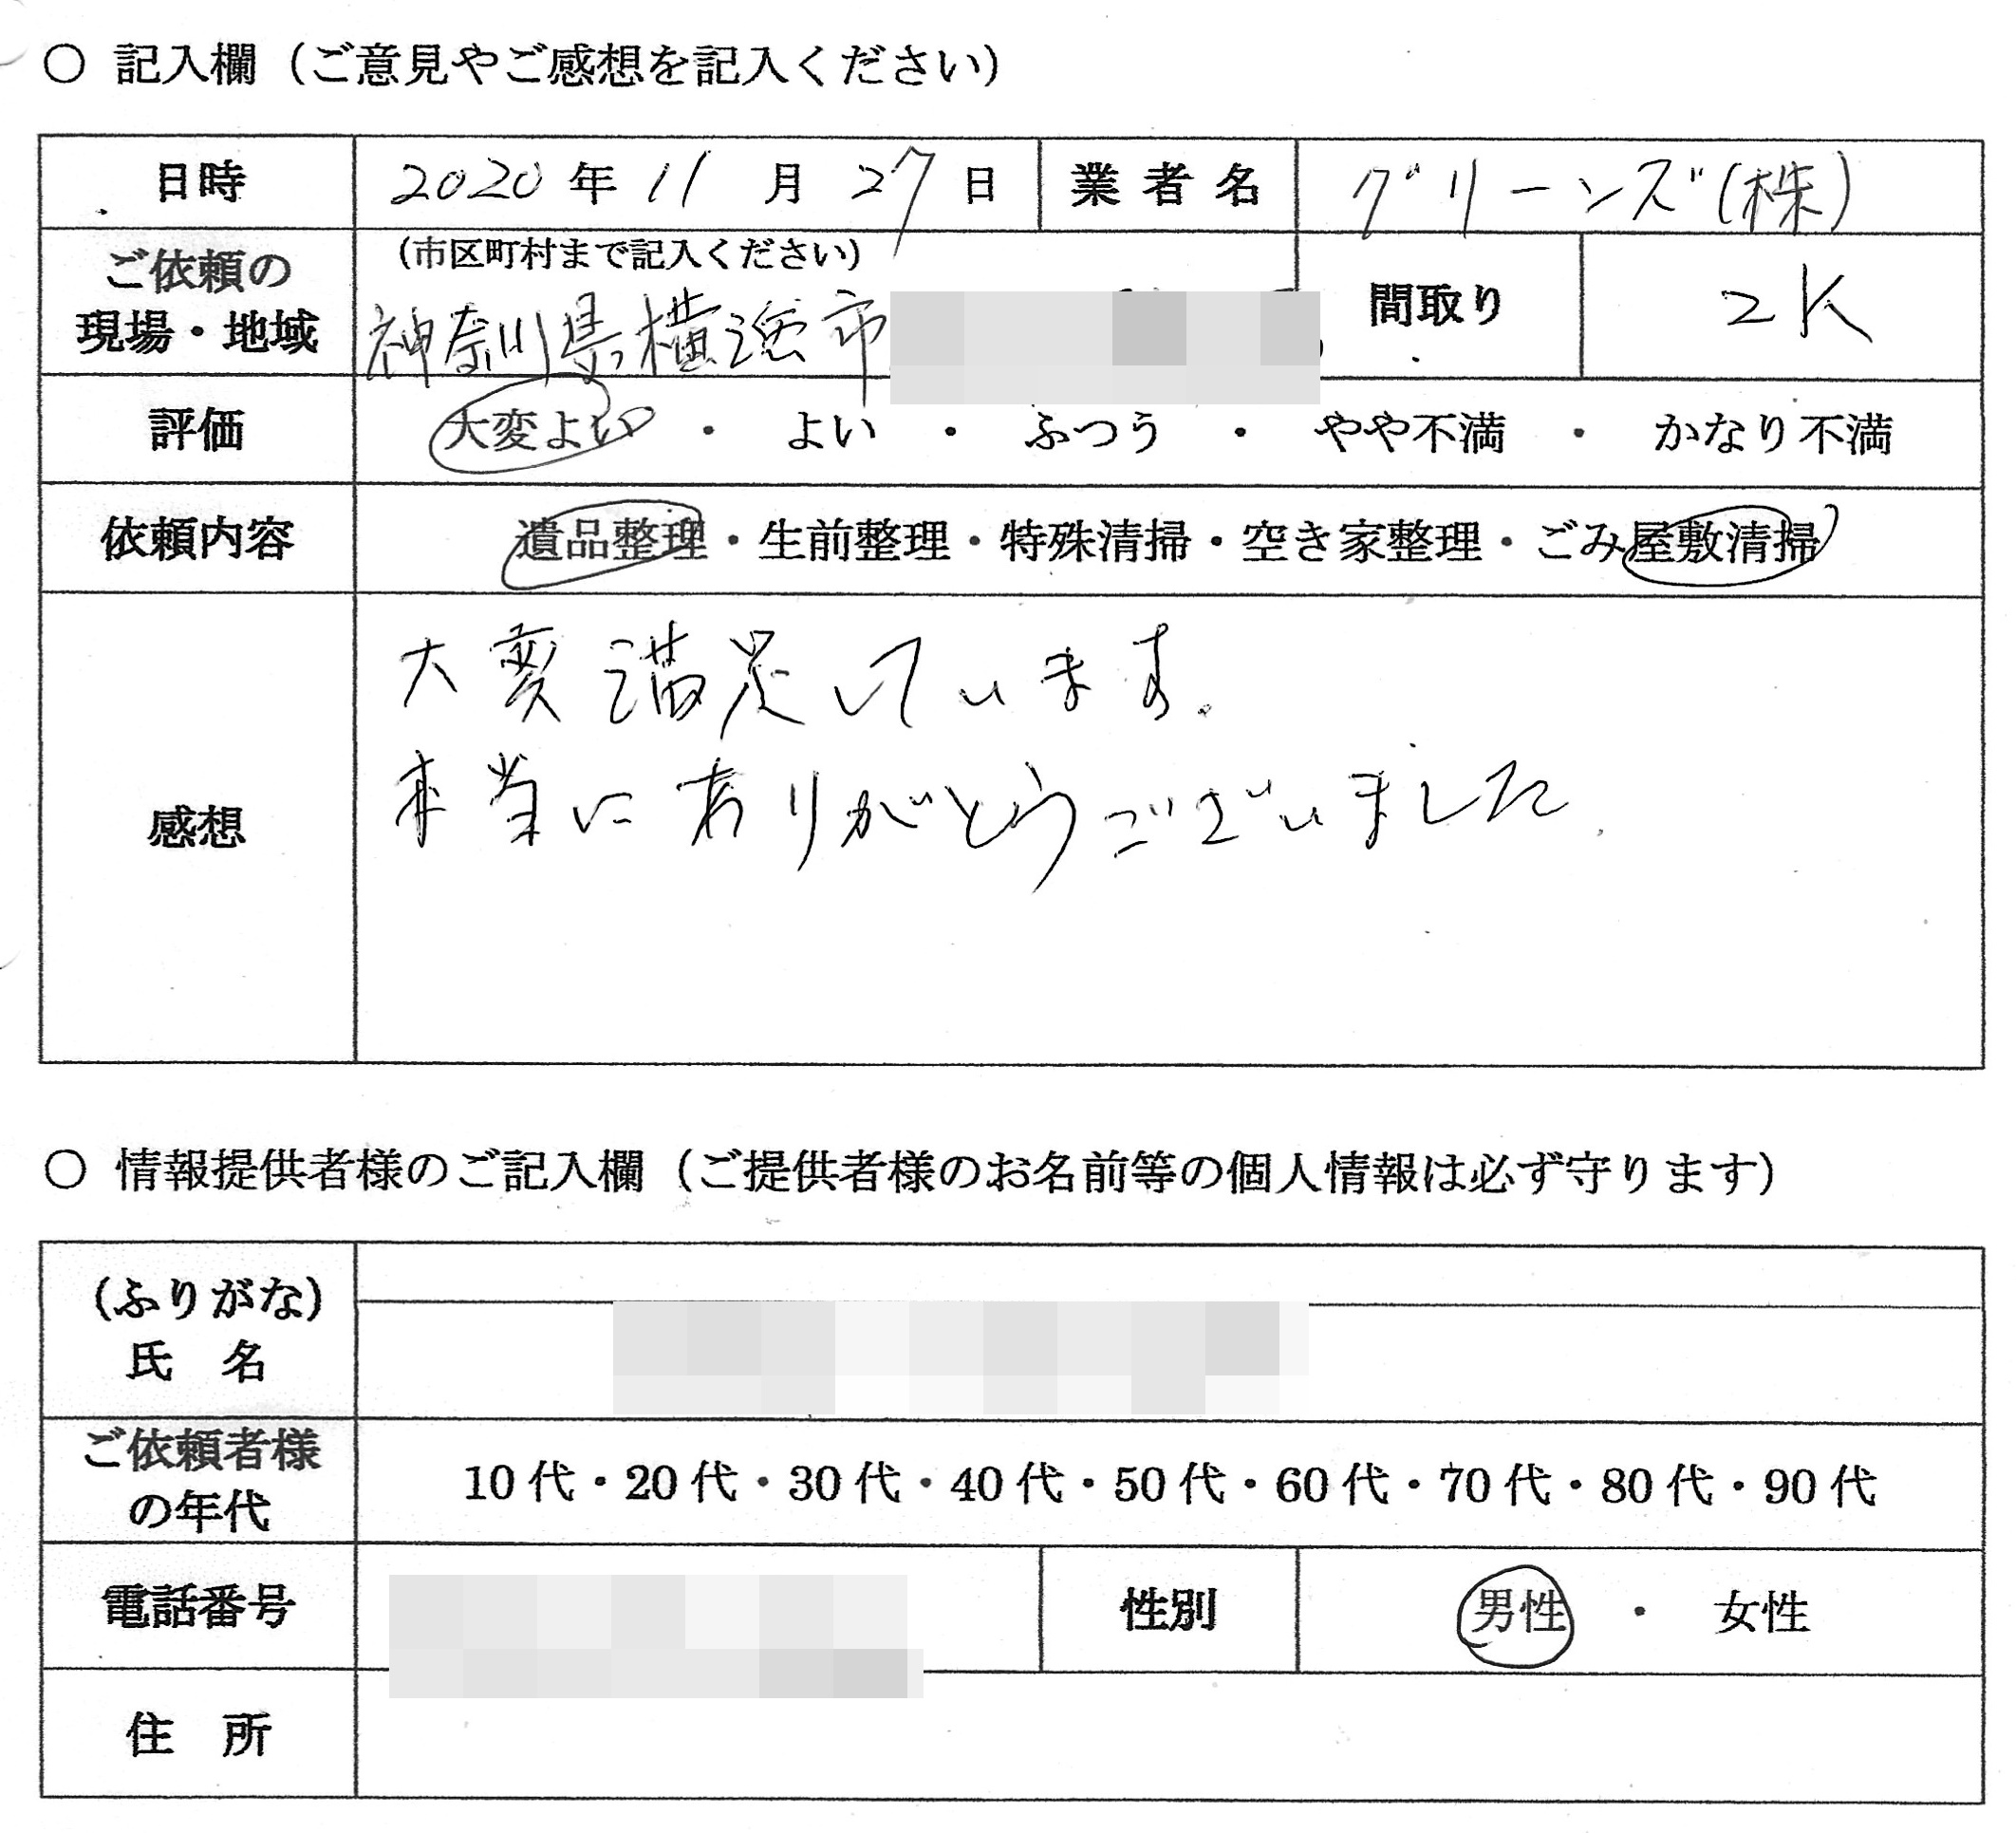 ○ 記入欄（ご意見やご感想を記入ください）
日時 2020 年 11 月 27 日 業者名 グリーンズ(株)
ご依頼の現場・地域 (市区町村まで記入ください)
神奈川県横浜市 間取り 2K
評価 大変よい ・ よい ・ ふつう ・ やや不満 ・ かなり不満
依頼内容 遺品整理・生前整理・特殊清掃・空き家整理・ごみ屋敷清掃
感想
大変満足しています。
本当にありがとうございました。
○ 情報提供者様のご記入欄（ご提供者様のお名前等の個人情報は必ず守ります）
(ふりがな)
氏 名
ご依頼者様
の年代 10代・20代・30代・40代・50代・60代・70代・80代・90代
電話番号 性別 男性 ・ 女性
住 所